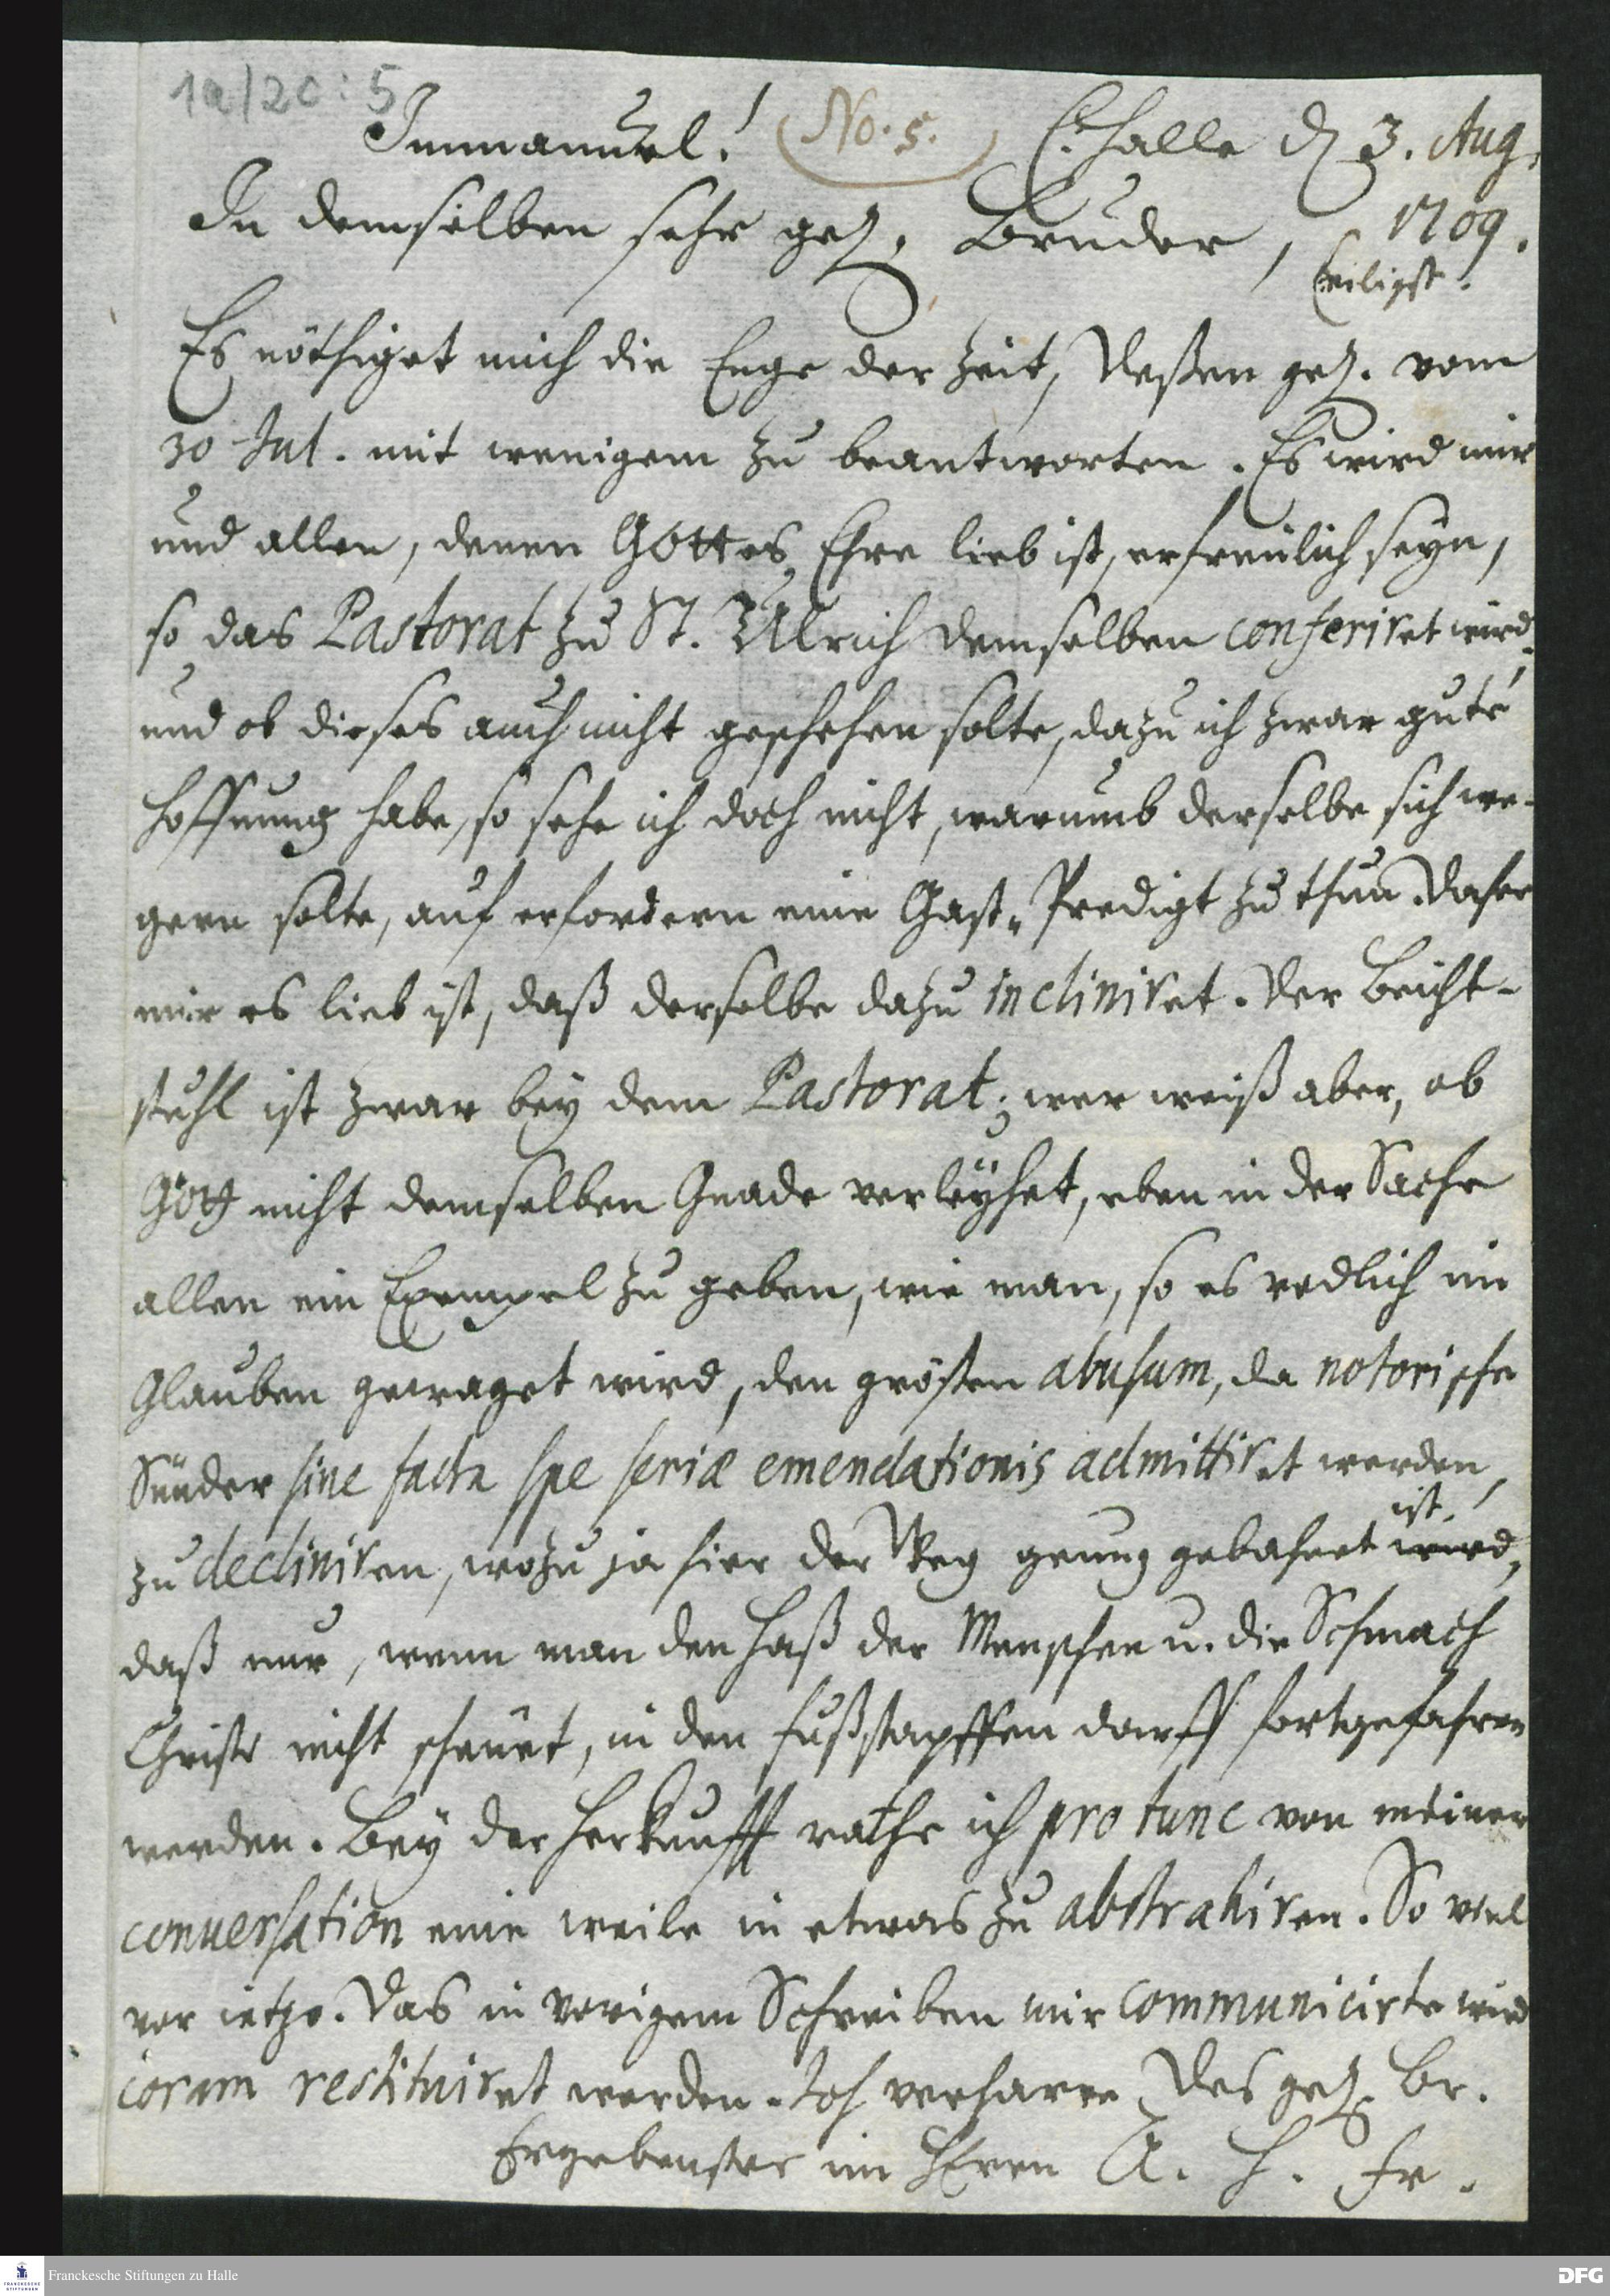 1a/2c:5
Immanuel! (No. 5.) Halle d. 3. Aug.
1709.
In demselben sehr gel. Bruder,
eiligst.
Es nöthiget mich die Enge der Zeit, Deßen gel. vom
30 Jul. mit wenigem zu beantworten. Es wird mir
und allen, denen GOttes Ehre lieb ist, erfreulich seyn,
so das Pastorat zu St. Ulrich demselben conferiret wird,
und ob dieses auch nicht geschehen solte, dazu ich zwar gute
Hoffnung habe, so sehe ich doch nicht, warumb derselbe sich we-
gern solte, auf erfordern eine Gast-Predigt zu thun. Daher
mir es lieb ist, daß derselbe dazu incliniret. Der Beicht-
stuhl ist zwar bey dem Pastorat; wer weiß aber, ob
GOtt nicht demselben Gnade verleyhet, eben in der Sache
allen ein Exempel zu geben, wie man, so es redlich im
Glauben gewaget wird, den grösten abusum, da notorische
Sünder sine facta spe seriæ emendationis admittiret werden,
zu decliniren, wozu ja hier der Weg genug gebahnet wird, ist,
daß nur, wenn man den Haß der Menschen u. die Schmach
Christi nicht scheuet, in den Fußstapffen darff fortgefahren
werden. Bey der Herkunfft rathe ich pro tunc von meiner
conversation eine weile in etwas zu abstrahiren. So viel
vor ietzo. Das in vorigem Schreiben mir communicirte wird
coram restituiret werden. Ich verharre Des gel. Br.
Ergebenster im HErrn A. H. Fr.
Franckesche Stiftungen zu Halle
FRANCKESCHE STIFTUNGEN
DFG